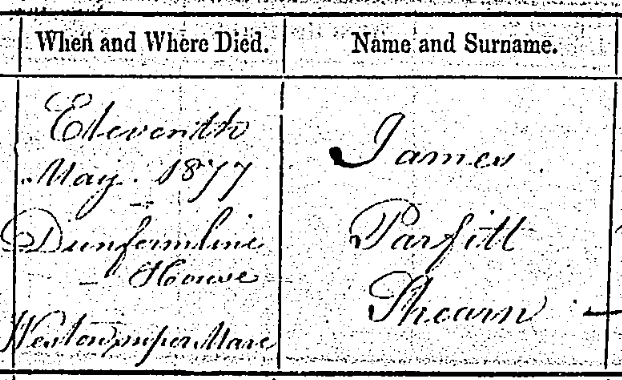 When and Where Died.
Name and Surname.
Eleventh
May 1877
Dunfermline
House
Weston super Mare
James
Parfitt
Shearn